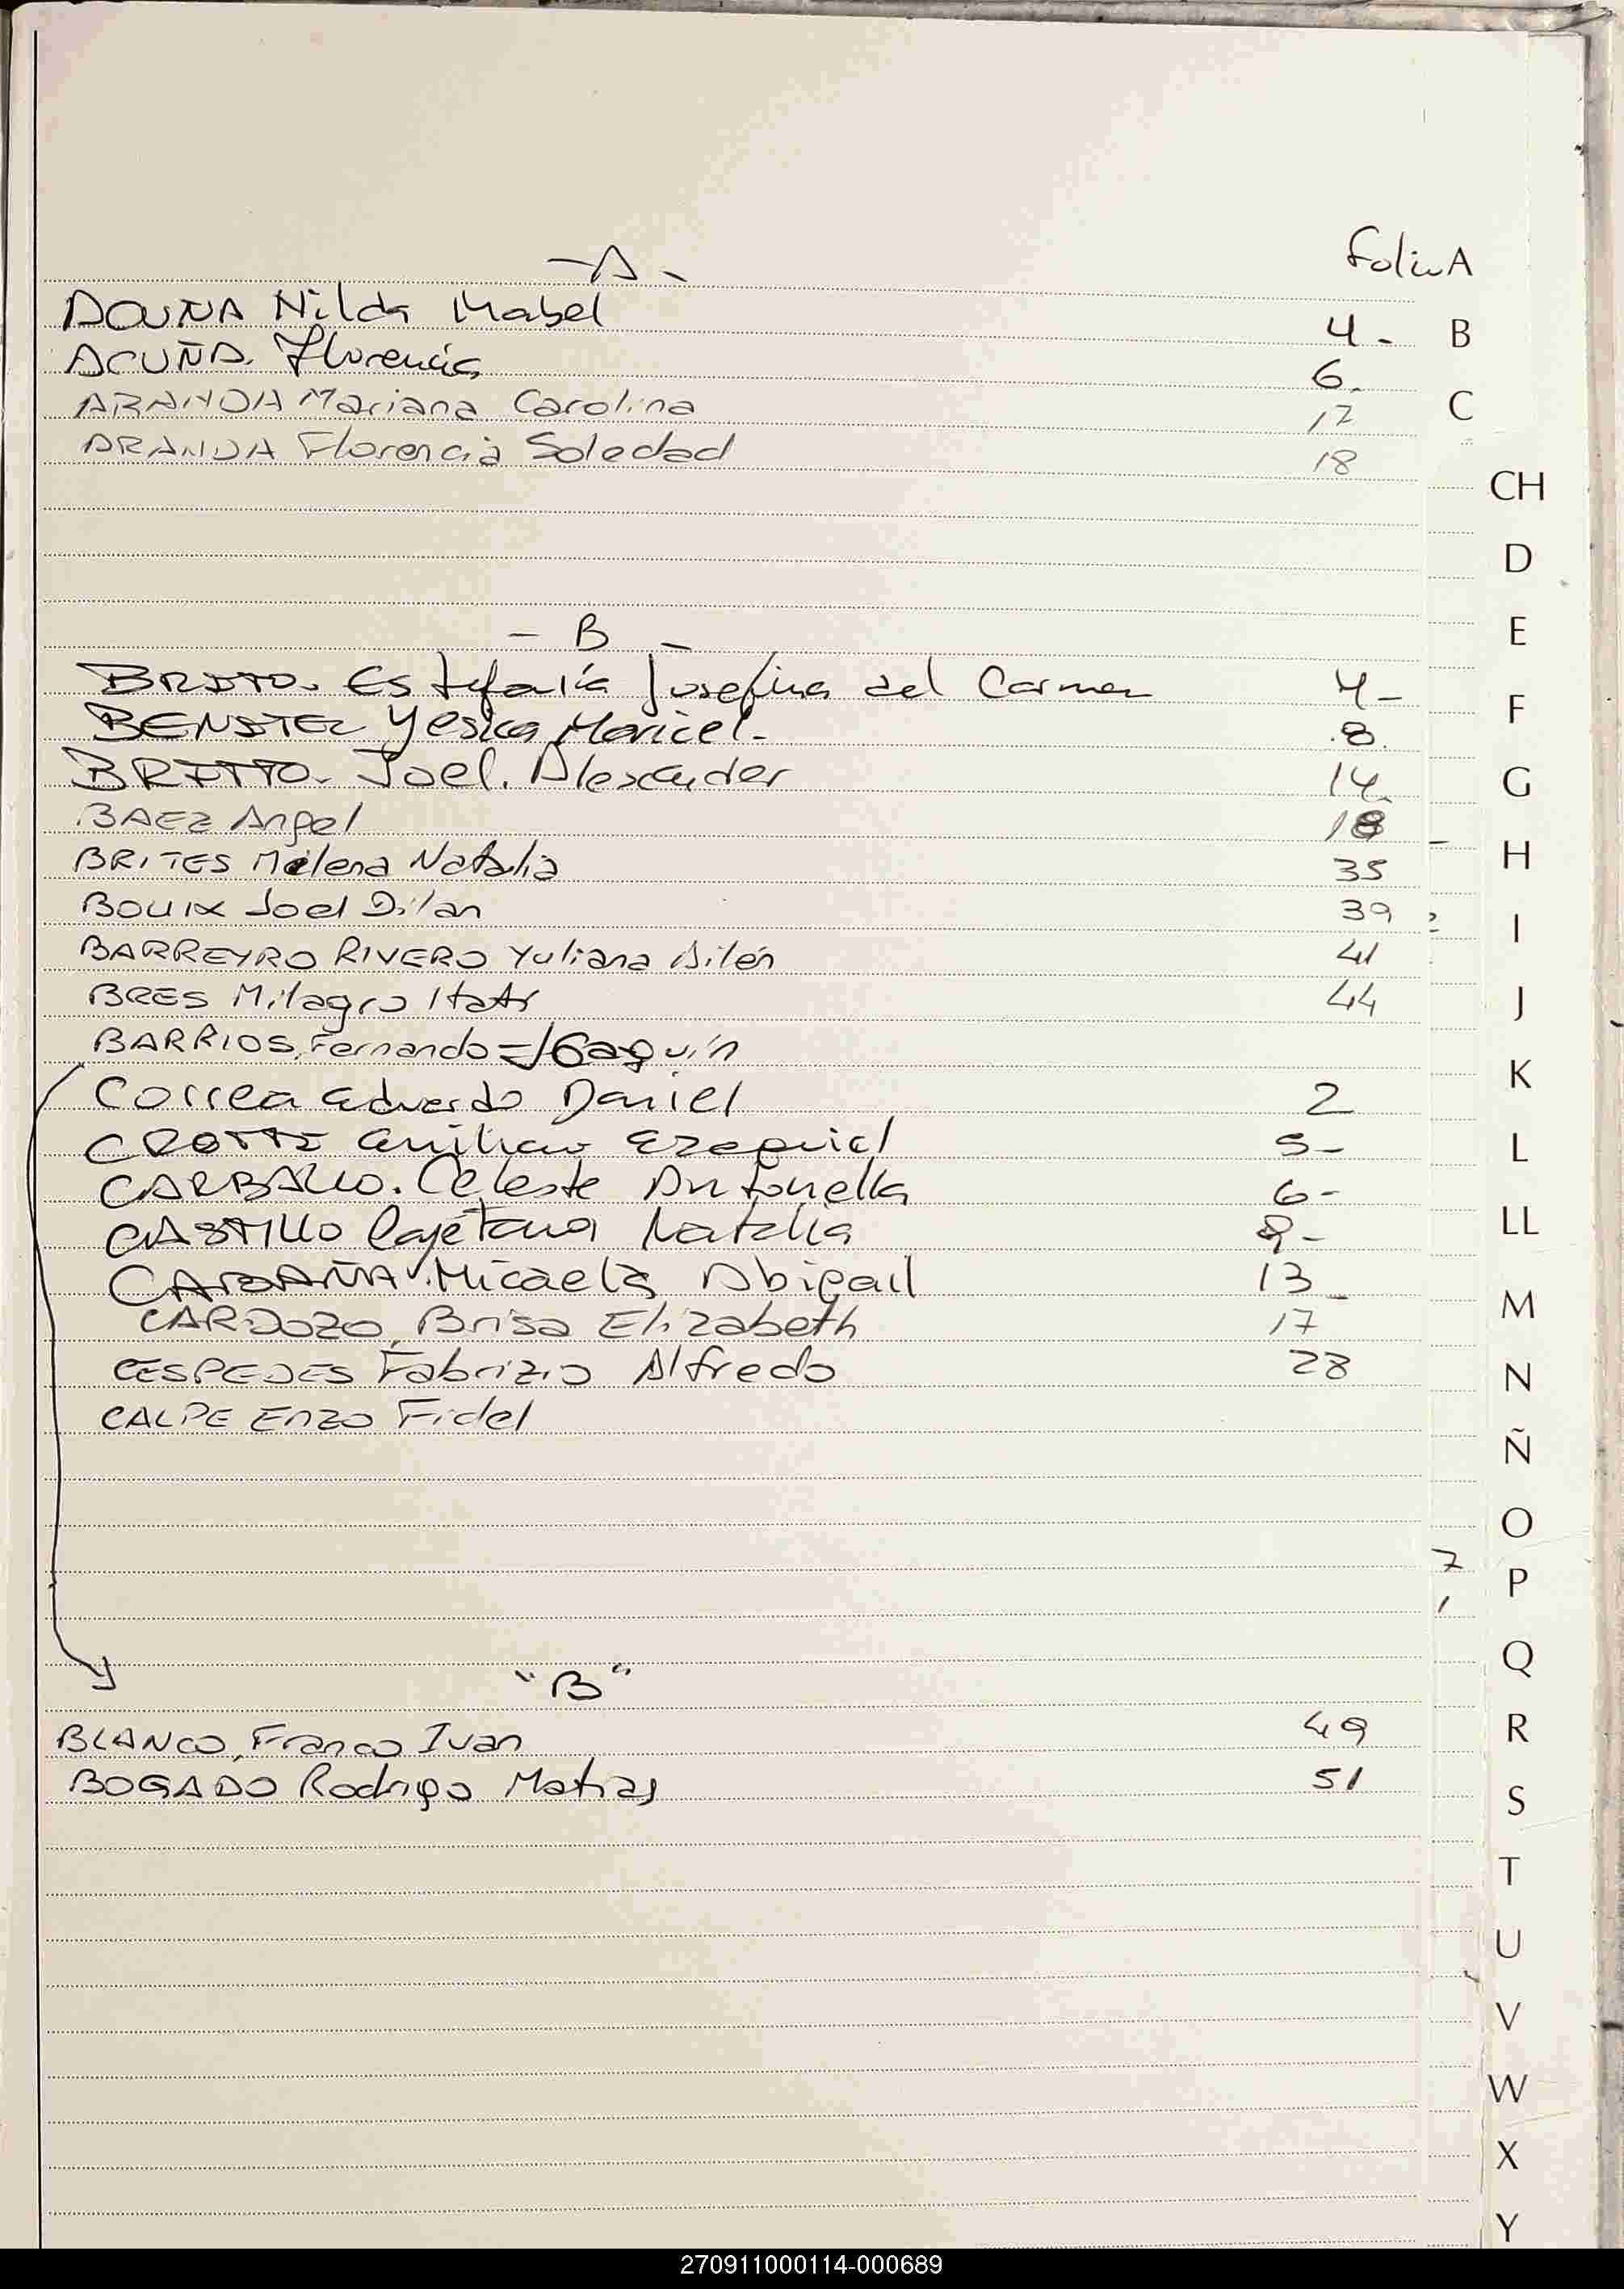 - A - Folio A
ACUÑA Nilda Mabel 4 - B
ACUÑA. Florencia 6.
ARANDA Mariana Carolina 17 C
ARANDA Florencia Soledad 18
CH
D
E
- B -
Estefanía Josefina del Carmen 4 -
F
Yesica Maricel. - 8.
BRITTO. Joel. Alexander 14. G
BAEZ Angel 18
BRITES Melena Natalia 35 H
BOUIX Joel Dilan 39
I
BARREYRO RIVERO Yuliana Ailén 41
BRES Milagro Itatí 44 J
BARRIOS, Fernando = Joaquín
K
Correa Eduardo Daniel 2
CROTTI Emiliano Ezequiel 5 - L
CARBALLO. Celeste Antonella 6 -
CASTILLO Cayetana Natalia 9 - LL
CABAÑA Micaela Abigail 13 -
M
CARDOZO, Brisa Elizabeth 17
CESPEDES Fabrizio Alfredo 28 N
CALPE Enzo Fidel
Ñ
O
7
P
Q
"B"
BLANCO, Franco Ivan 49 R
BOGADO Rodrigo Matias 51
S
T
U
V
W
X
Y
270911000114-000689